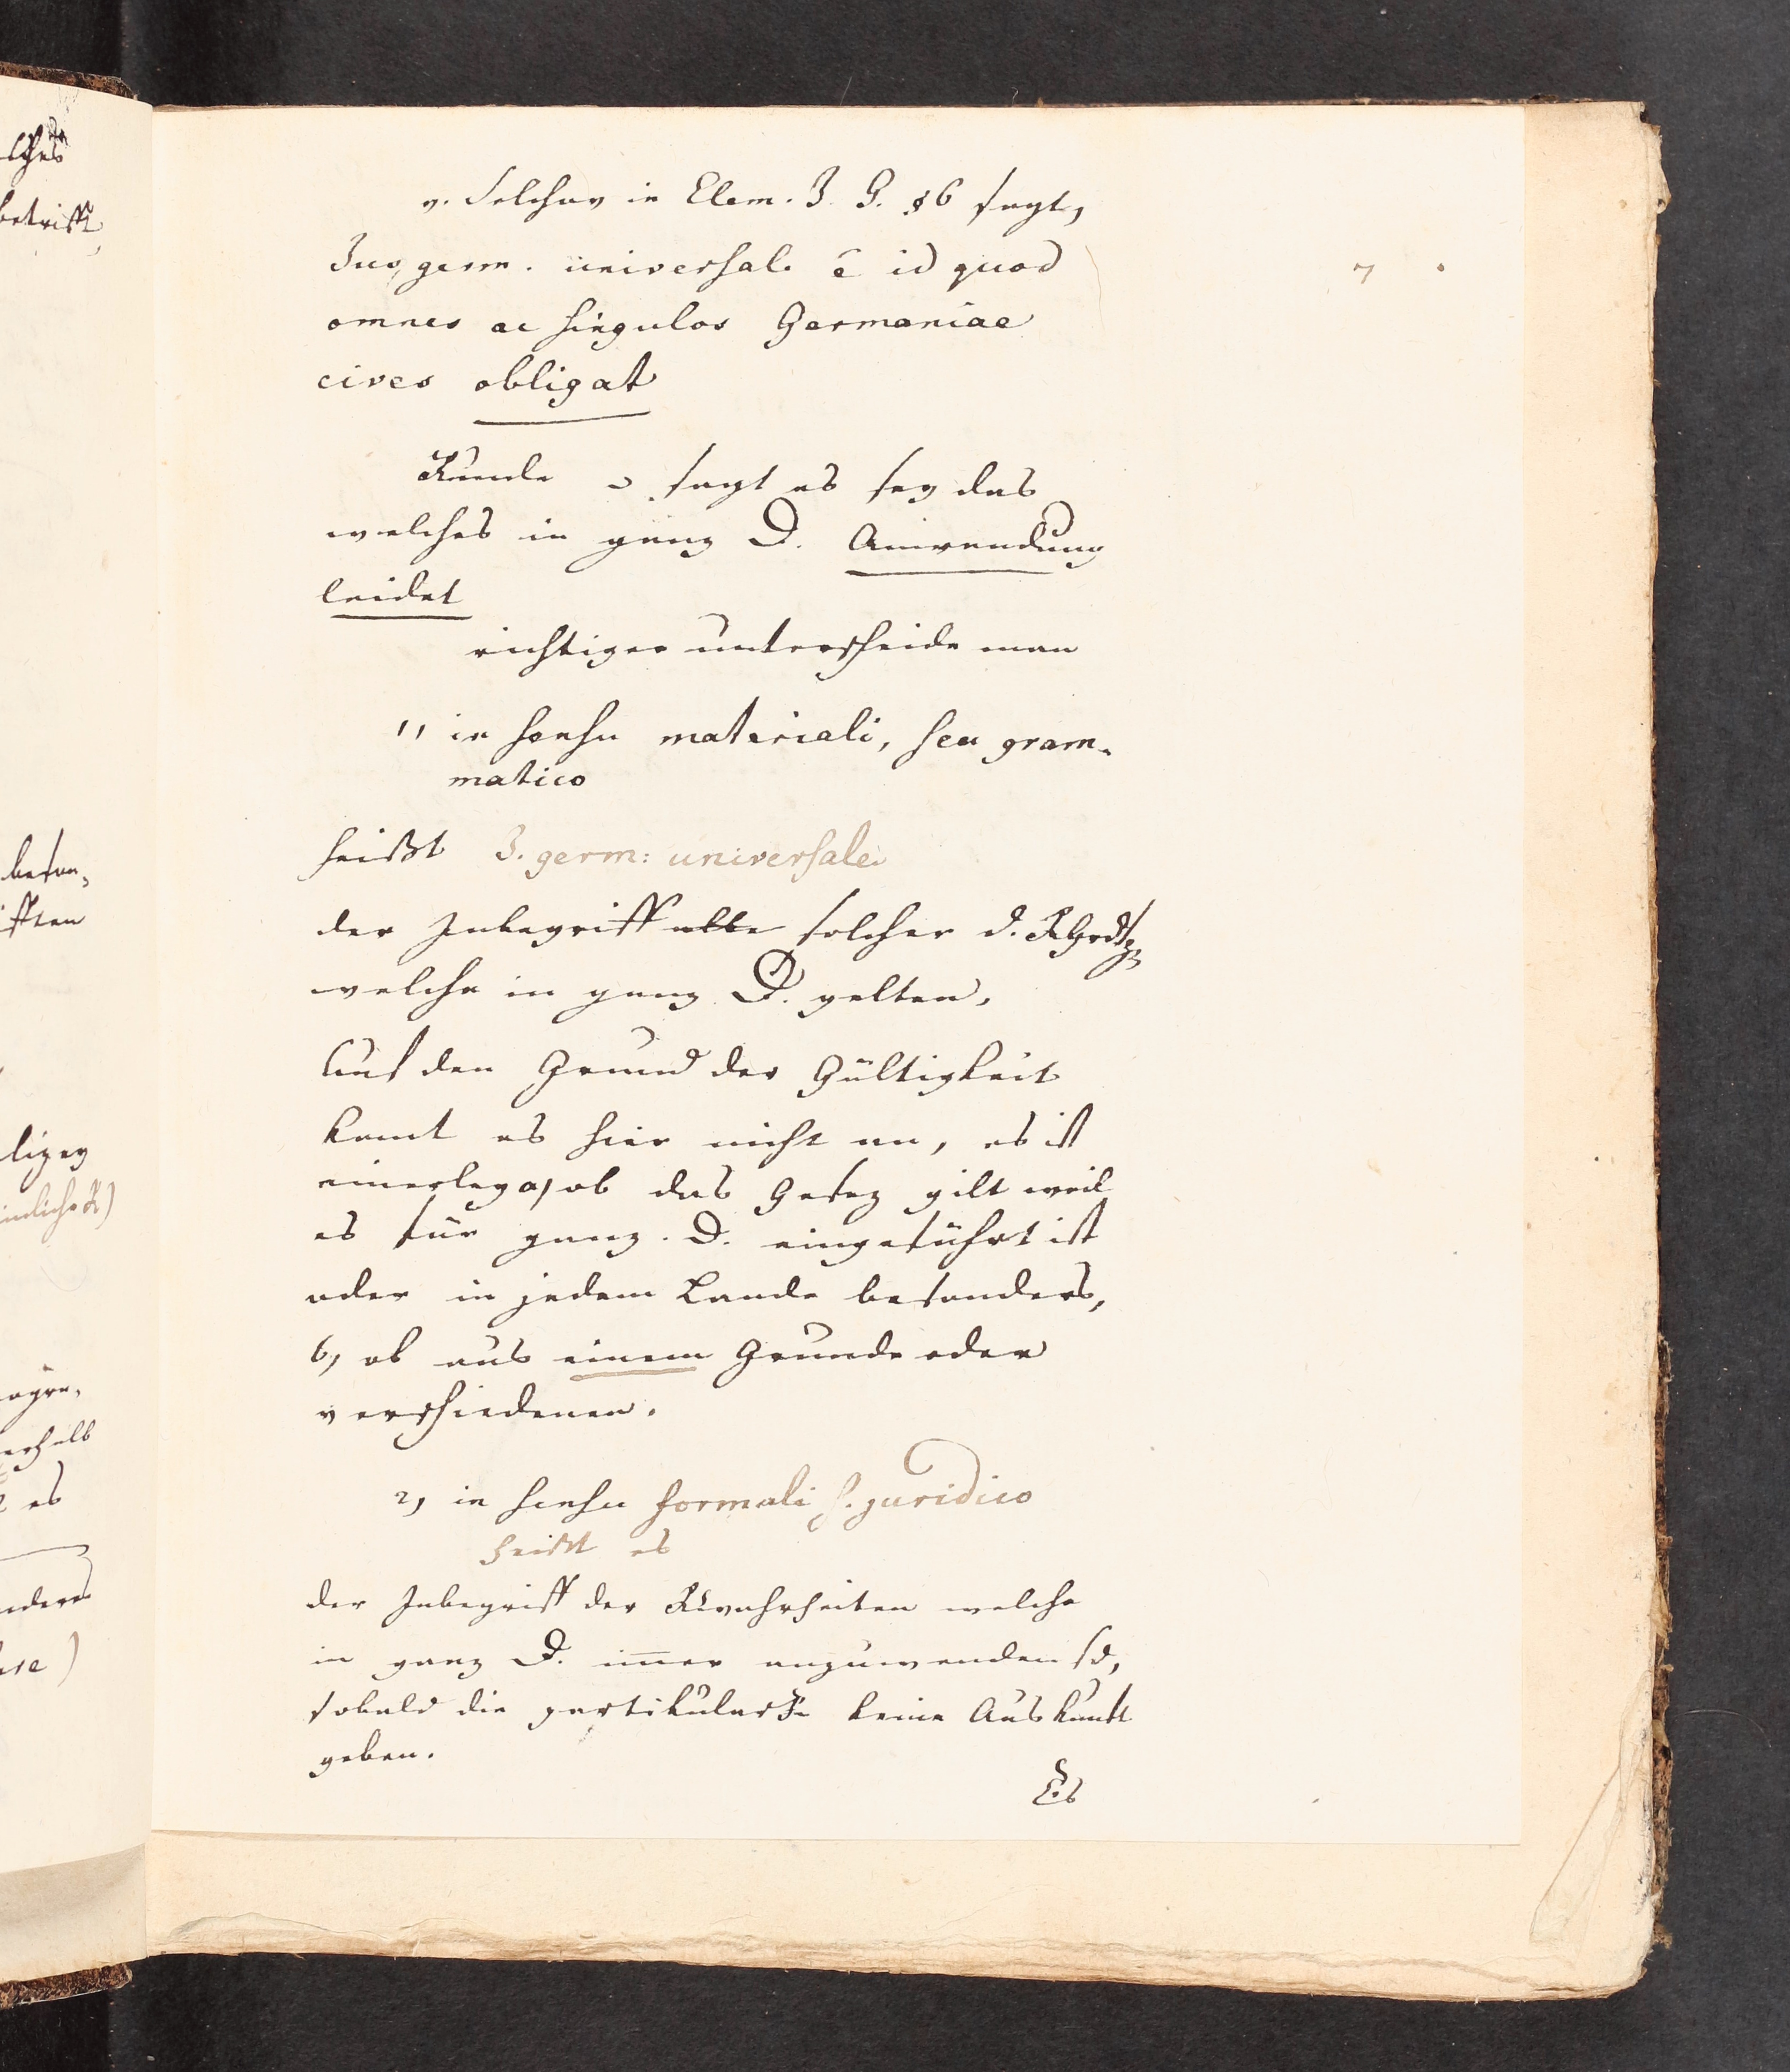 v. Selchow in Elem. J. G. §6 sagt,
Jus germ. universal. ē id quod
omnes ac singulos Germaniae
cives obligat
Runde sagt es sey das
welches in ganz D. Anwendung
leidet
richtiger unterscheide man
1, in sensu materiali, seu gram-
matico
heißt J. germ: universale
der Inbegriff alle solcher d.
welche in ganz D. gelten,
Auf den Grund der Gültigkeit
komt es hier nicht an, es ist
einerley a, ob das Gesez gilt weil
es für ganz D. eingeführt ist
oder in jedem Lande besonders,
b, ob aus einem Grunde oder
verschiedenen.
2, in sensu formali s. juridico
heißt es
der Inbegriff der RWahrheiten welche
in ganz D. im̄er anzuwenden sd,
sobald die partikularR. keine Auskunft
geben.
Es
7
lches
betrifft,
beson-
iften
lizey
imliche R)
erhalb
es
ndere